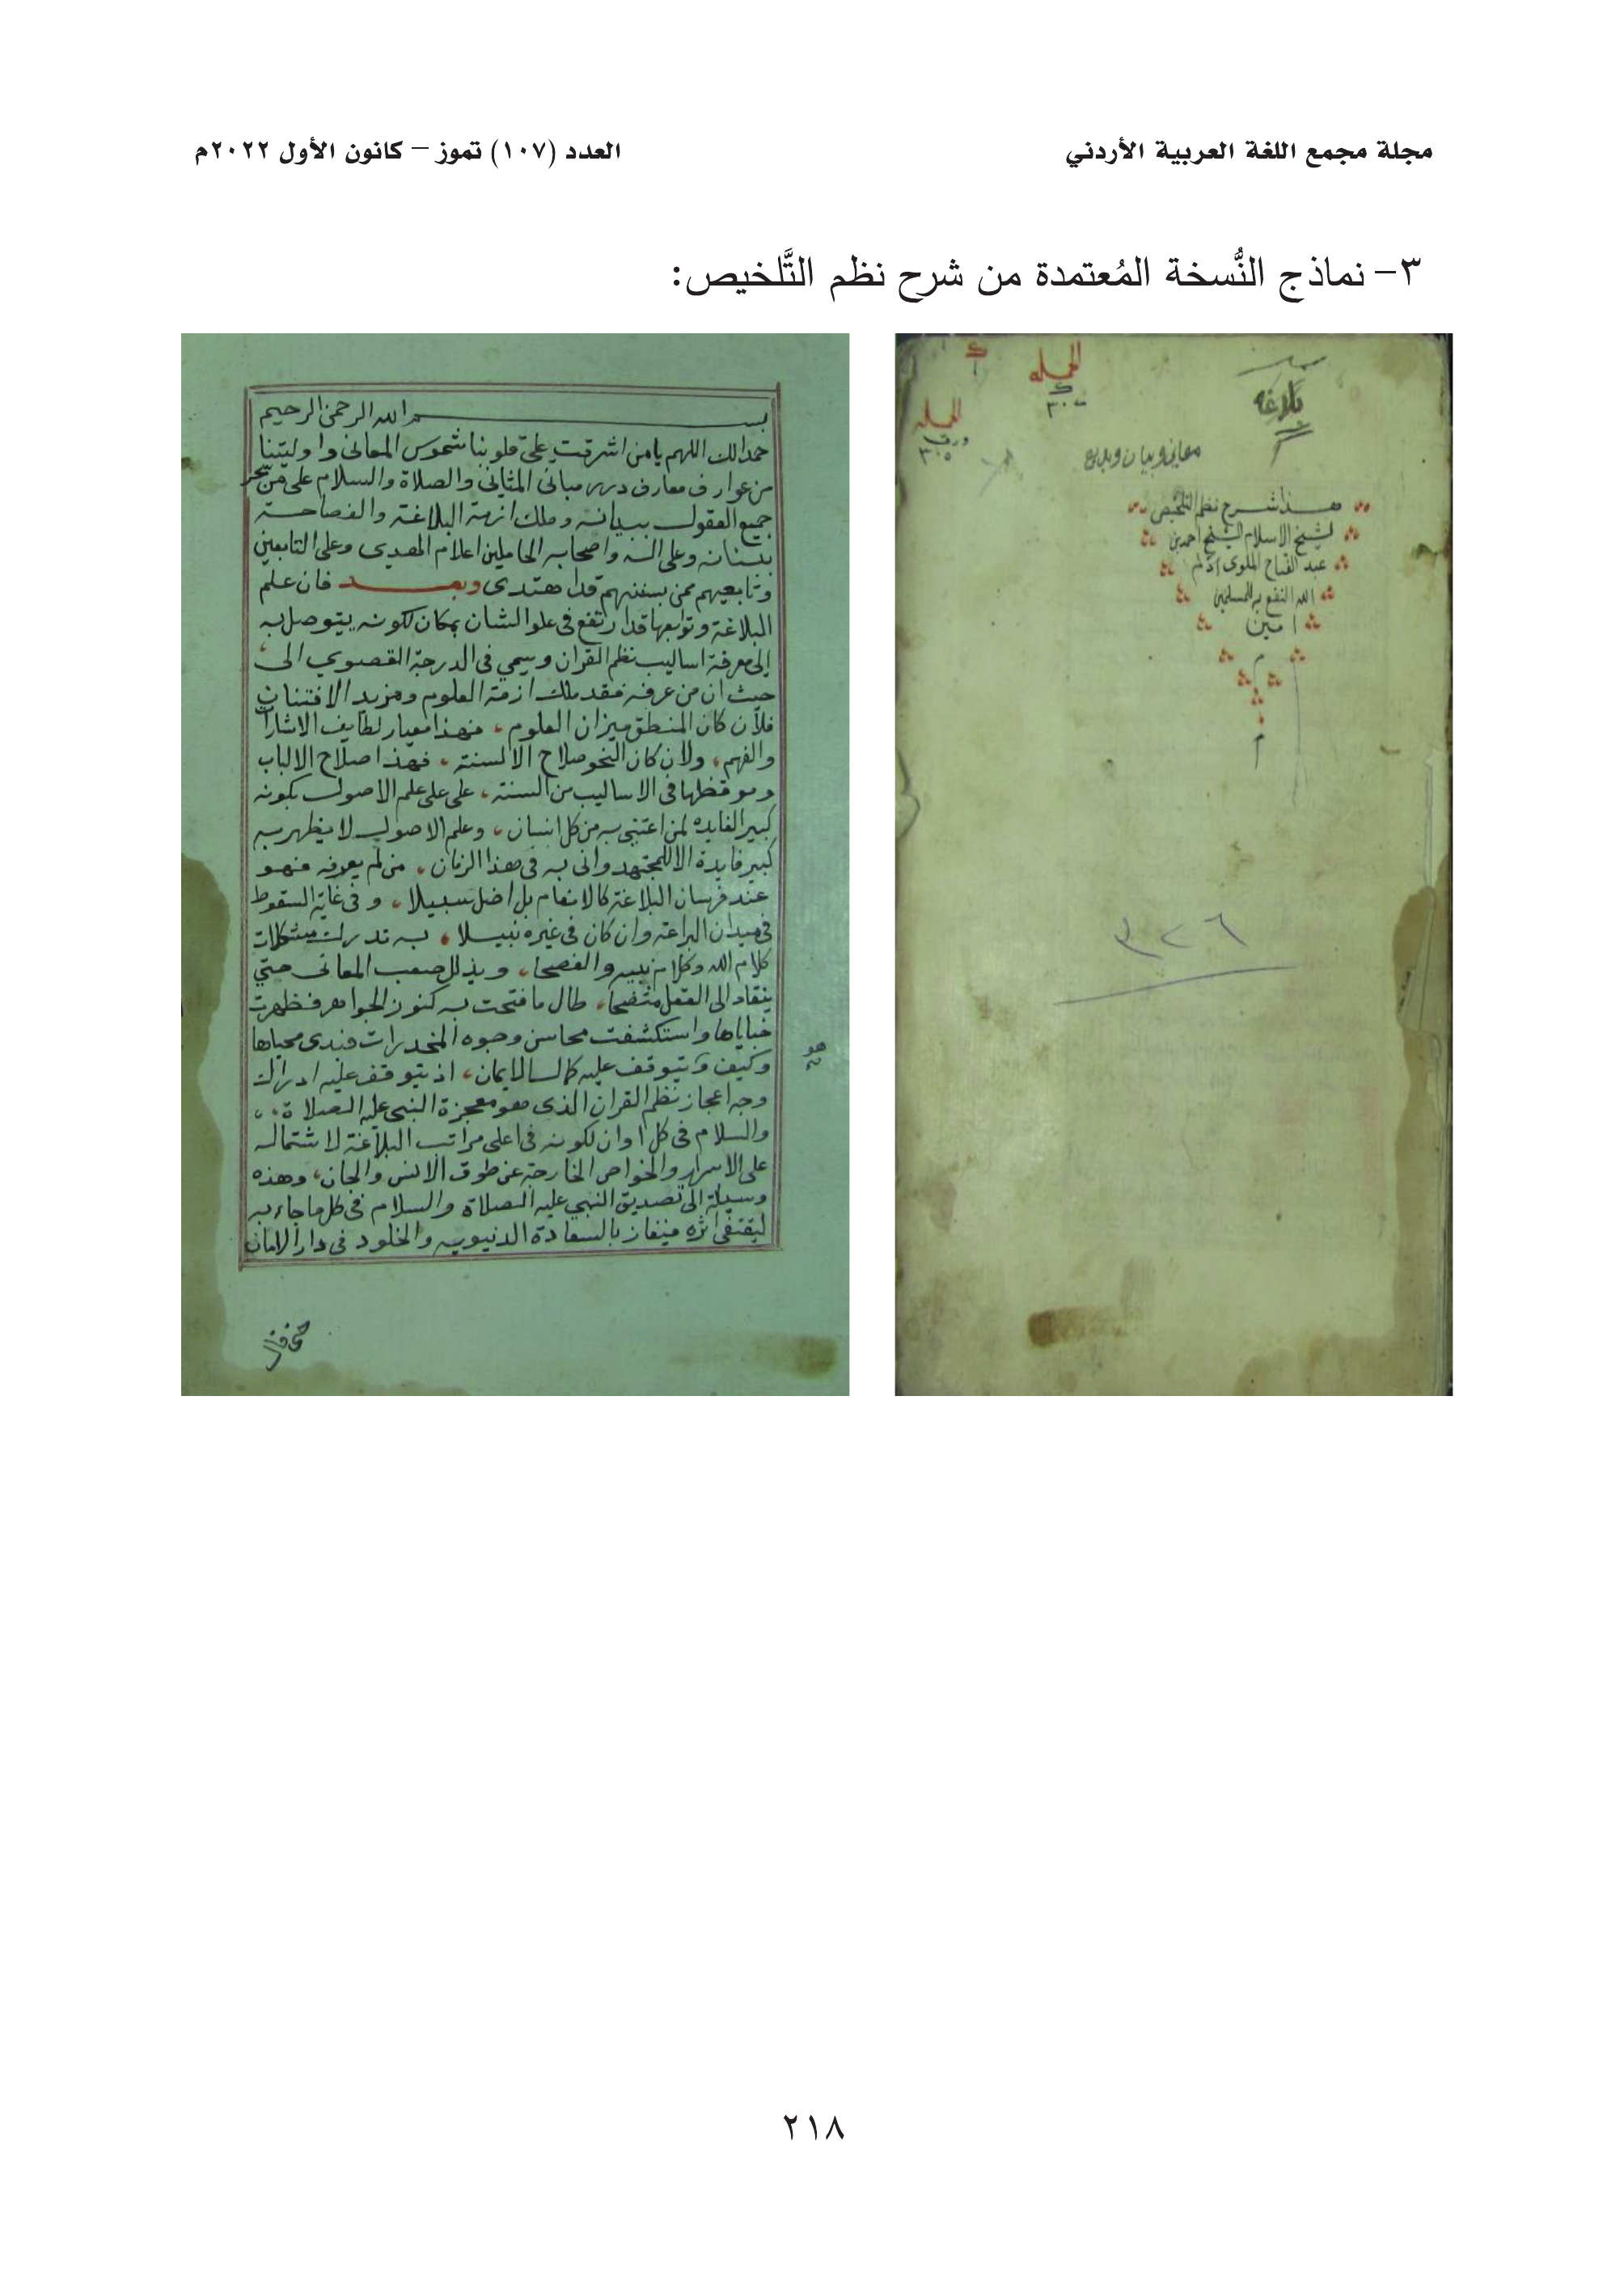 مجلة مجمع اللغة العربية الأردني
العدد (١٠٧) تموز – كانون الأول ٢٠٢٢م
٣- نماذج النُّسخة المُعتمدة من شرح نظم التَّلخيص:
بلاغة
معاني وبيان وبديع
هذا شرح نظم التلخيص
لشيخ الاسلام الشيخ احمد بن
عبد الفتاح الملوي ادام
الله النفع به للمسلمين
امين
م
٣٢٦
بسم الله الرحمن الرحيم
حمدا لك اللهم يا من اشرقت على قلوبنا شموس المعانى واوليتنا
من عوارف معارف درر مبانى المثانى والصلاة والسلام على من سحر
جميع العقول ببيانه وملك ازمة البلاغة والفصاحة
ببنانه وعلى اله واصحابه الحاملين اعلام الهدى وعلى التابعين
وتابعيهم ممن بسننهم قد اهتدى وبعد فان علم
البلاغة وتوابعها قد ارتفع فى علو الشان بمكان لكونه يتوصل به
إلى معرفة اساليب نظم القران وسمي فى الدرجة القصوي الى
حيث ان من عرفه فقد ملك ازمة العلوم ومزيد الافتنان
فلأن كان المنطق ميزان العلوم، فهذا معيار لطايف الاشارا
والفهم، ولان كان النحو صلاح الالسنة، فهذا صلاح الالباب
وموقظها فى الاساليب من السنة، على على علم الاصول بكونه
كبير الفايده لمن اعتنى به من كل انسان، وعلم الاصول لا يظهر به
كبير فايدة الا للمجتهد وانى به فى هذا الزمان، من لم يعرفه فهو
عند فرسان البلاغة كالانعام بل اضل سبيلا، وفى غاية السقوط
فى ميدان البراعة وان كان فى غيره نبيلا، به تدرك مشكلات
كلام الله وكلام نبيه والفصحا، ويذلل صعب المعانى حتي
ينقاد الى العقل متضحا، طال ما فتحت به كنوز الجواهر فظهرت
خباياها واستكشفت محاسن وجوه المخدرات فبدى محياها
وكيف ويتوقف عليه كمال الايمان، اذ يتوقف عليه ادراك
وجه اعجاز نظم القران الذى هو معجزة النبى عليه الصلاة
والسلام فى كل اوان لكونه فى اعلى مراتب البلاغة لاشتماله
على الاسرار والخواص الخارجة عن طوق الانس والجان، وهذه
وسيلة الى تصديق النبي عليه الصلاة والسلام فى كل ما جاء به
ليقتفى اثره فيفاز بالسعادة الدنيويه والخلود فى دار الامان
هو
٢١٨